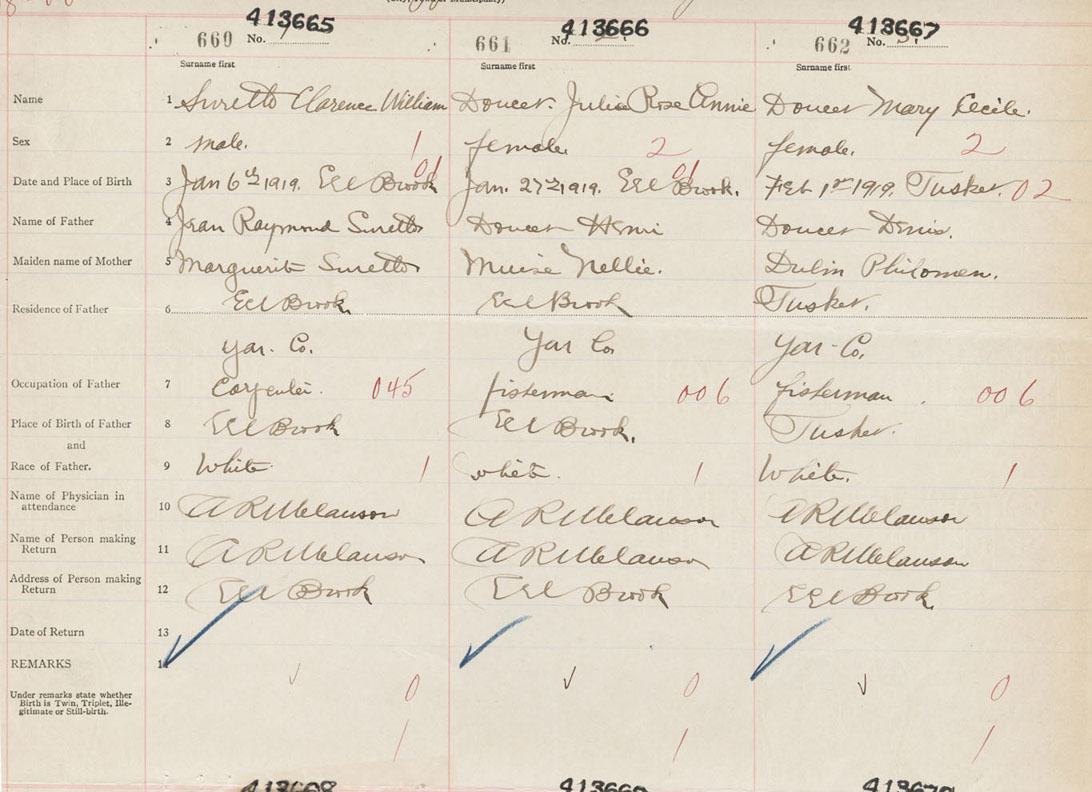 413665 413666 413667
660 No. 661 No. 662 No.
Surname first Surname first Surname first
Name 1 Surette Clarence William Doucet. Julie Rose Annie Doucet Mary Cecile.
Sex 2 male. 1 female. 2 female. 2
01 01
Date and Place of Birth 3 Jan 6th 1919. Eel Brook Jan. 27th 1919. Eel Brook. Feb 1st 1919. Tusket. 02
Name of Father 4 Jean Raymond Surette Doucet Henri Doucet Denis.
Maiden name of Mother 5 Marguerite Surette Muise Nellie. Dulin Philomen.
Residence of Father 6 Eel Brook Eel Brook Tusket.
Yar. Co. Yar Co. Yar. Co.
Occupation of Father 7 Carpenter. 045 fisherman 006 fisherman. 006
Place of Birth of Father 8 Eel Brook Eel Brook. Tusket.
and
Race of Father. 9 White 1 white. 1 White. 1
Name of Physician in
attendance 10 A R Melanson A R Melanson A R Melanson
Name of Person making
Return 11 A R Melanson A R Melanson A R Melanson
Address of Person making
Return 12 Eel Brook Eel Brook Eel Brook.
Date of Return 13
REMARKS 14
Under remarks state whether
Birth is Twin, Triplet, Ille-
gitimate or Still-birth.
0 0 0
1 1 1